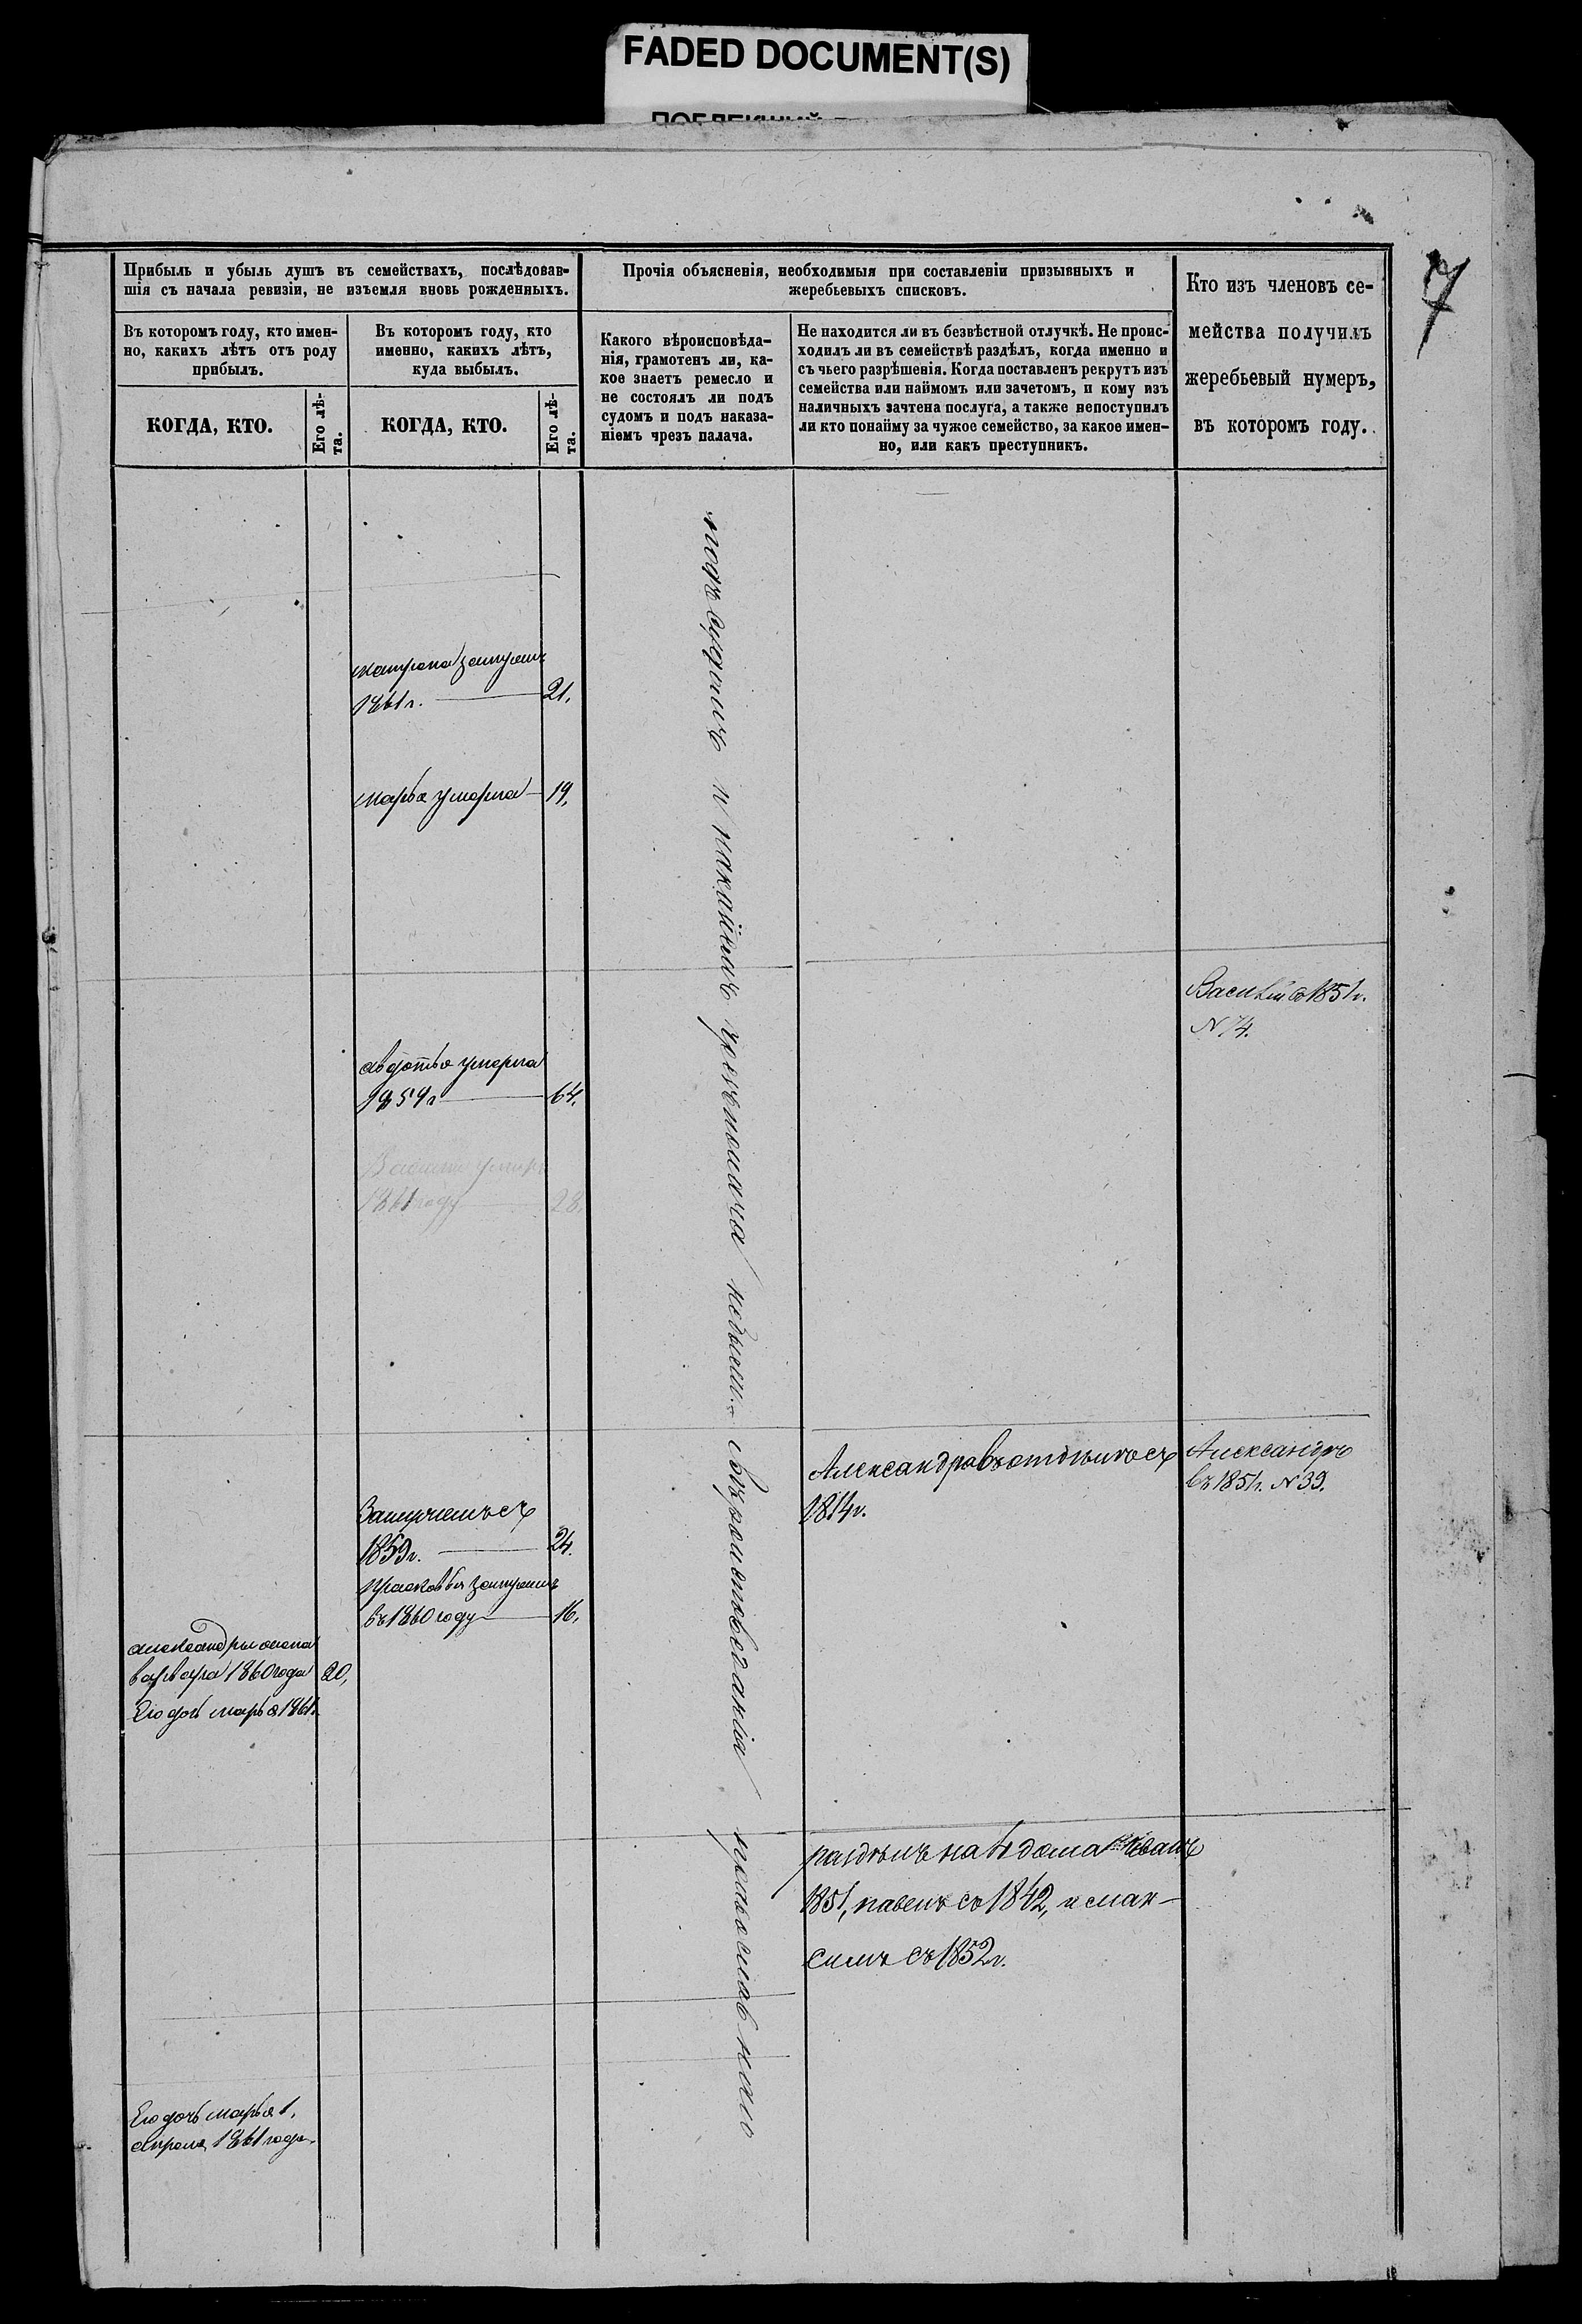 FADED DOCUMENT(S)
7
Прибыль и убыль душъ въ семействахъ, послѣдовав-
шія съ начала ревизіи, не изъемля вновь рожденныхъ.
Прочія объясненія, необходимыя при составленіи призывныхъ и
жеребьевыхъ списковъ.
Кто изъ членовъ се-
мейства получилъ
жеребьевый нумеръ,
въ которомъ году.
Въ которомъ году, кто имен-
но, какихъ лѣтъ отъ роду
прибылъ.
Въ которомъ году, кто
именно, какихъ лѣтъ,
куда выбылъ.
Какого вѣроисповѣда-
нія, грамотенъ ли, ка-
кое знаетъ ремесло и
не состоялъ ли подъ
судомъ и подъ наказа-
ніемъ чрезъ палача.
Не находится ли въ безвѣстной отлучкѣ. Не проис-
ходилъ ли въ семействѣ раздѣлъ, когда именно и
съ чьего разрѣшенія. Когда поставленъ рекрутъ изъ
семейства или наймомъ или зачетомъ, и кому изъ
наличныхъ зачтена послуга, а также непоступилъ
ли кто понайму за чужое семейство, за какое имен-
но, или какъ преступникъ.
КОГДА, КТО.
Его лѣ-
та.
КОГДА, КТО.
Его лѣ-
та.
1861г. 21.
марья умерла 19,
Василій съ 1851г.
N 74.
авдотья умерла
1859г 64.
умеръ
1861 году 28.
вѣроисповѣданія православнаго
подъ судомъ и
небыли
Александръ въ отдѣлкѣ съ
1814г.
Александръ
въ 1851г. N 39.
Замужемъ съ
1859г. 24.
прасковья замужемъ
въ 1860 году 16,
александры жена
варвара 1860 года 20,
Ею дочь марья 1861г.
раздѣлъ на дома Иванъ
1851, павелъ съ 1842, и мак-
симъ съ 1852г.
Ею дочь марья 1,
апреля 1861 года.